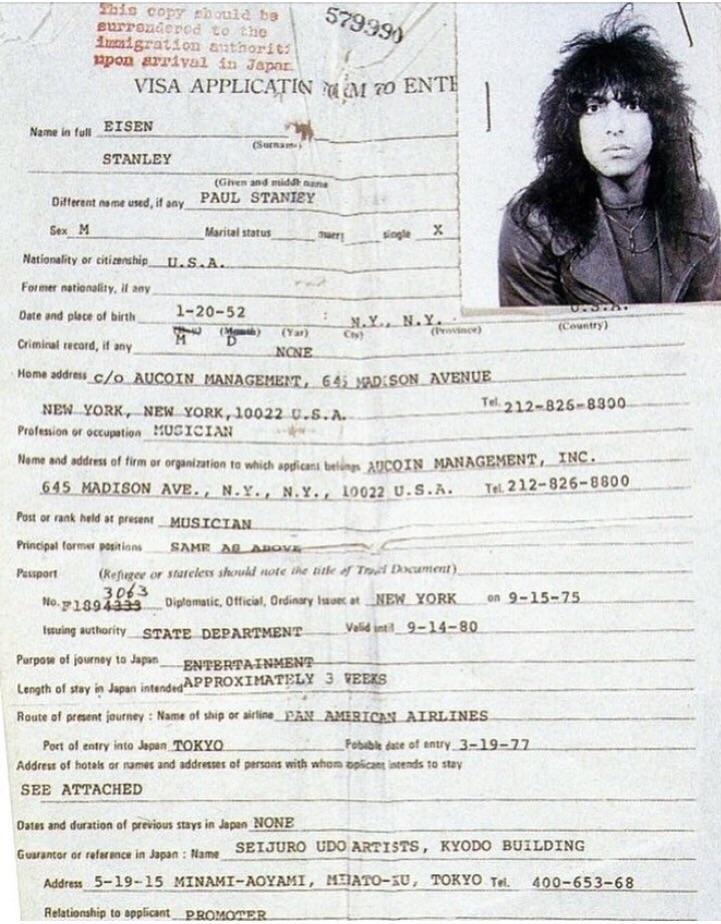 This copy should be
surrendered to the
immigration authoriti
upon arrival in Japan
579990
VISA APPLICATIN TO ENTE
Name in full EISEN
(Surname)
STANLEY
(Given and middle name
Different name used, if any PAUL STANLEY
Sex M Marital status single X
Nationality or citizenship U.S.A.
Former nationality, if any
Date and place of birth 1-20-52 : N.Y., N.Y. U.S.A.
(Day) (Month) (Yar) (Province) (Country)
M D
Criminal record, if any NONE
Home address c/o AUCOIN MANAGEMENT, 645 MADISON AVENUE
NEW YORK, NEW YORK,10022 U.S.A. Tel. 212-826-8800
Profession or occupation MUSICIAN
Name and address of firm or organization to which applicant belongs AUCOIN MANAGEMENT, INC.
645 MADISON AVE., N.Y., N.Y., 10022 U.S.A. Tel. 212-826-8800
Post or rank held at present MUSICIAN
Principal former positions SAME AS ABOVE
Passport (Refugee or stateless should note the title of Travel Document)
3063
No. F1894333 Diplomatic, Official, Ordinary Issued at NEW YORK on 9-15-75
Issuing authority STATE DEPARTMENT Valid until 9-14-80
Purpose of journey to Japan ENTERTAINMENT
Length of stay in Japan intended APPROXIMATELY 3 WEEKS
Route of present journey : Name of ship or airline PAN AMERICAN AIRLINES
Port of entry into Japan TOKYO Pobable date of entry 3-19-77
Address of hotels or names and addresses of persons with whom applicant intends to stay
SEE ATTACHED
Dates and duration of previous stays in Japan NONE
Guarantor or reference in Japan : Name SEIJURO UDO ARTISTS, KYODO BUILDING
Address 5-19-15 MINAMI-AOYAMI, MINATO-KU, TOKYO Tel. 400-653-68
Relationship to applicant PROMOTER